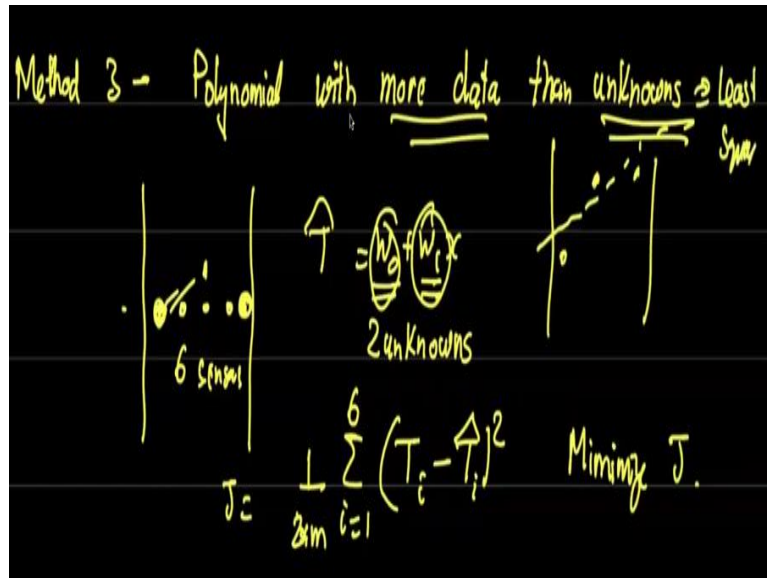 Method 3 - Polynomial with more data than unknowns ⇒ Least
Squares
T̂ = w₀ + w₁ x
2 unknowns
6 sensors
J = 1/2*m ∑ i=1 6 (Tᵢ - T̂ᵢ)²
Mimimze J.